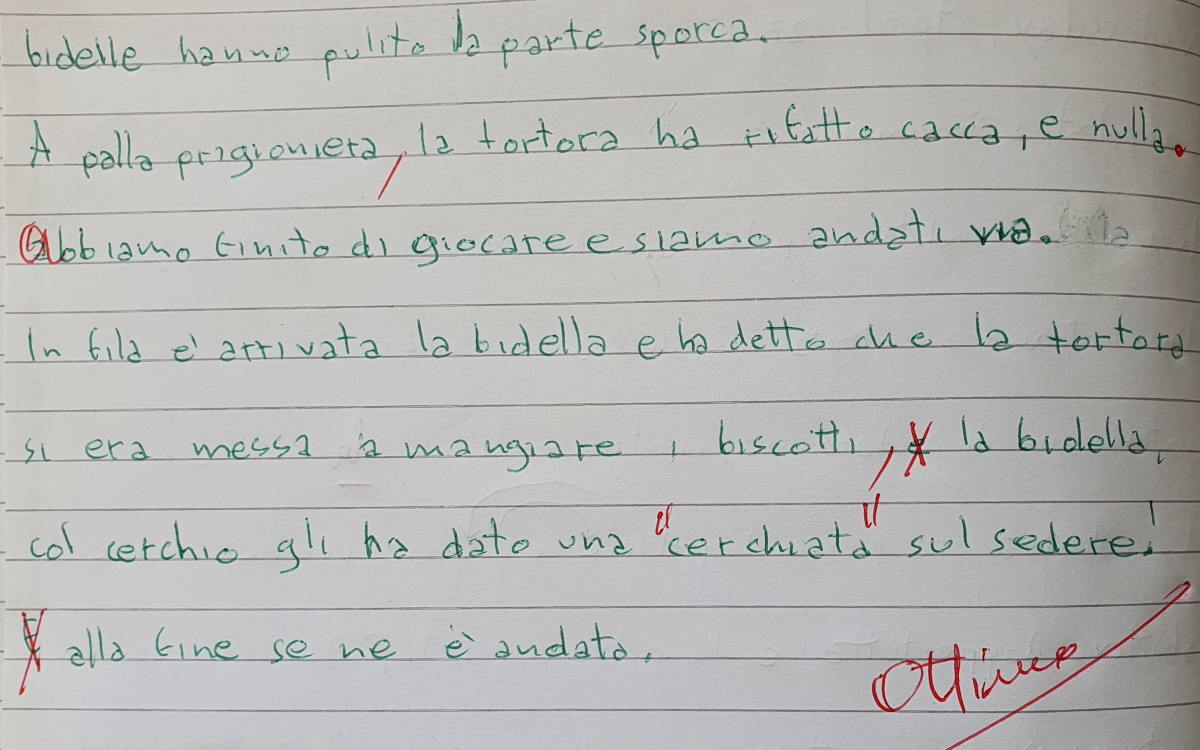 bidelle hanno pulito la parte sporca.
A palla prigioniera, la tortora ha rifatto cacca, e nulla.
Abbiamo finito di giocare e siamo andati via.
In fila e' arrivata la bidella e ha detto che la tortora
si era messa a mangiare i biscotti, la bidella,
col cerchio gli ha dato una "cerchiata" sul sedere!
alla fine se ne è andata.
Ottimo